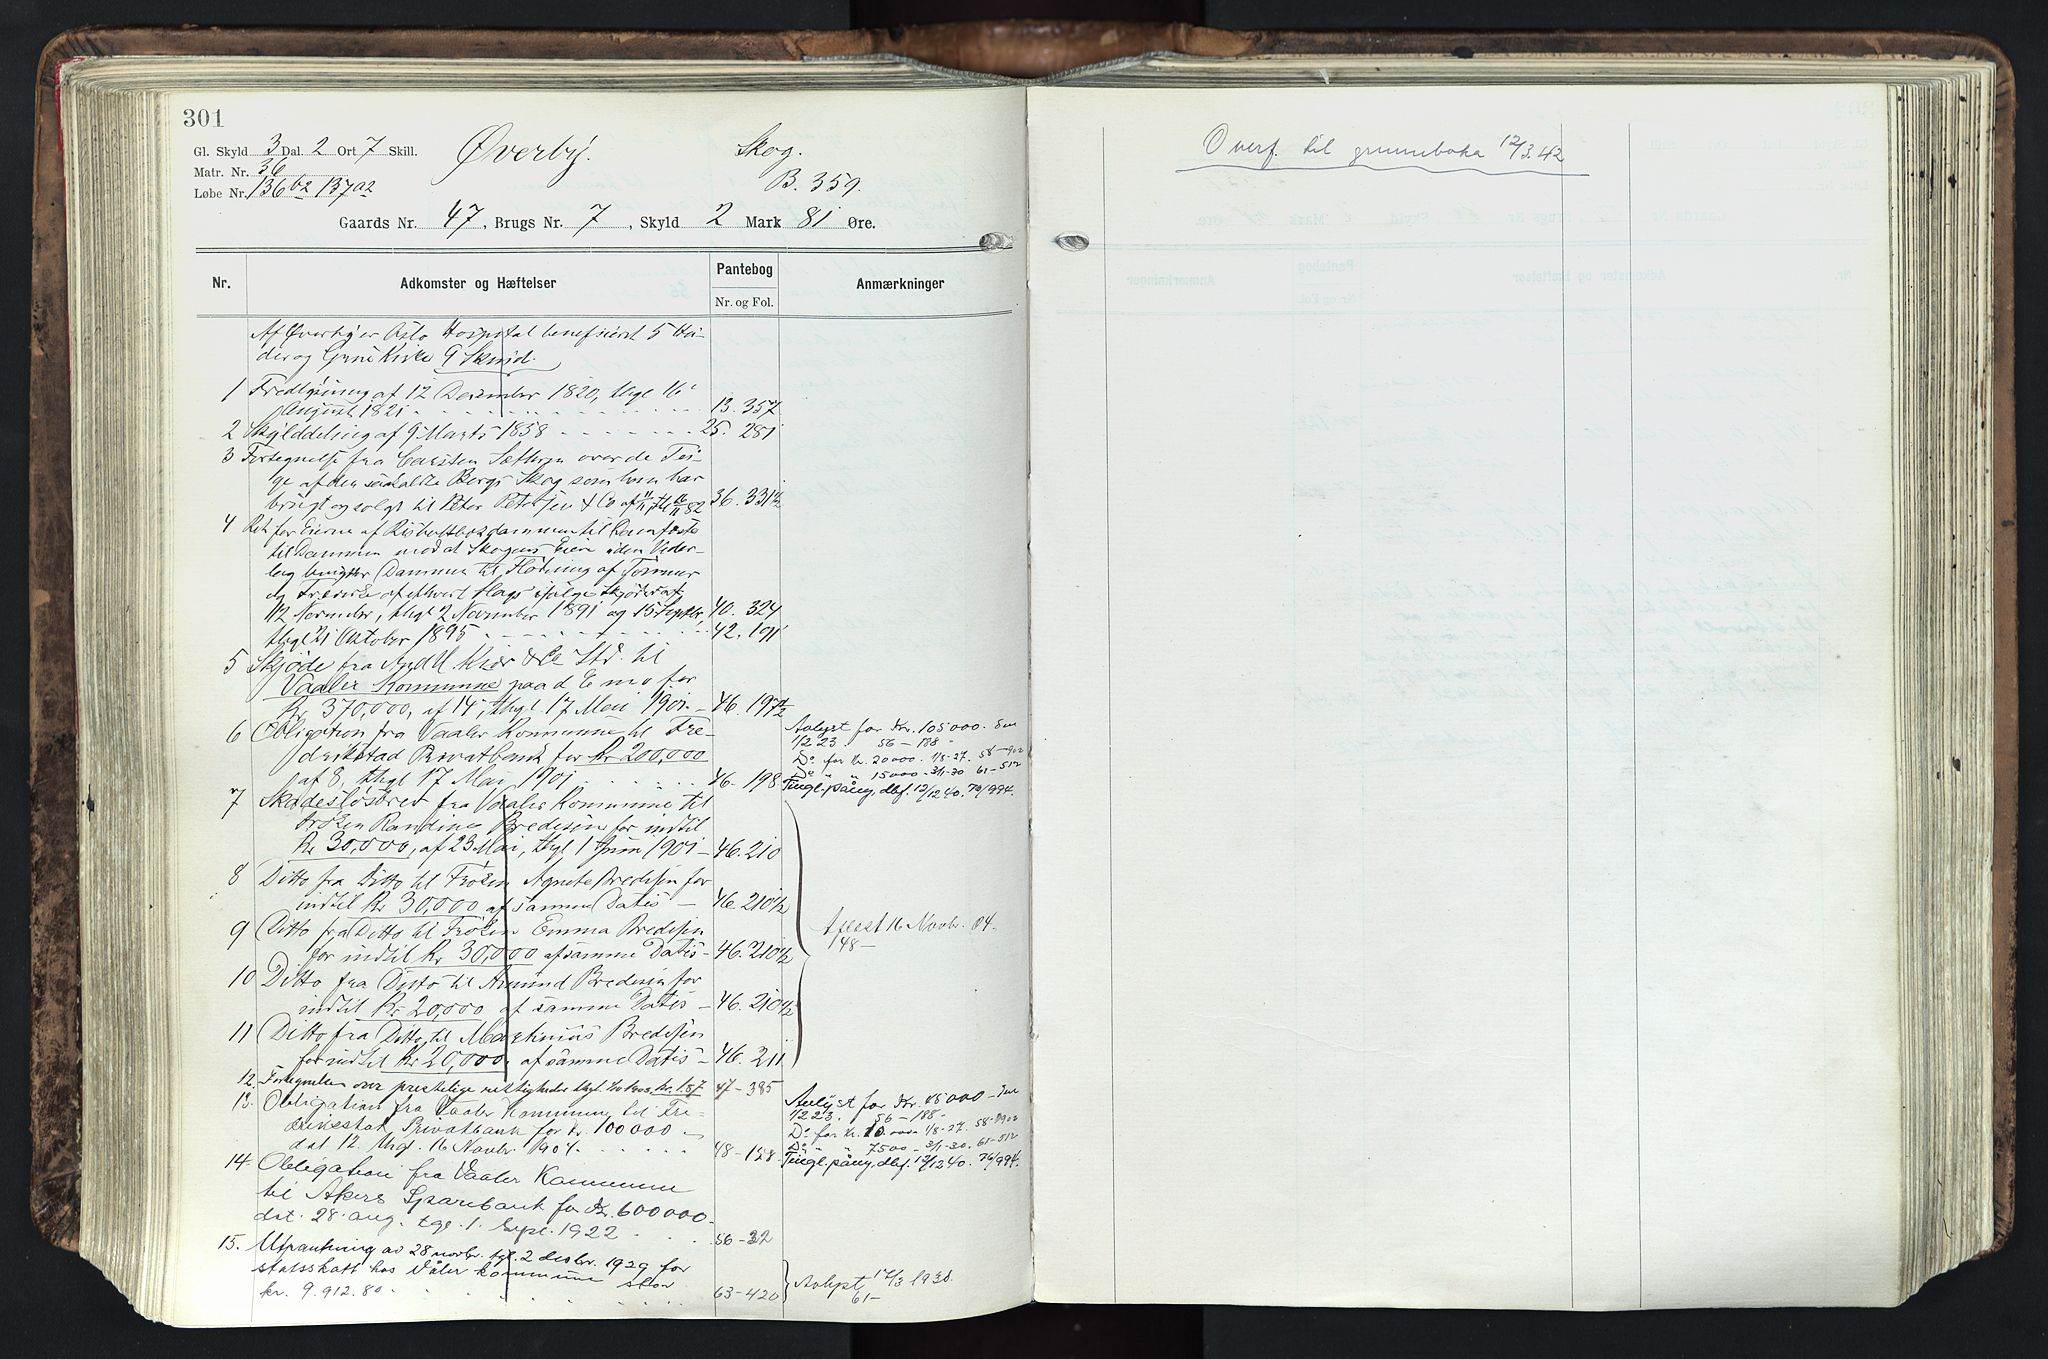 301
Gl. Skyld 3 Dal. 2 Ort 7 Skill. Øverby. Skog.
Matr. Nr. 36
Løbe Nr. 136 b2 137 a2 B. 359.
Gaards Nr. 47, Brugs Nr. 7, Skyld 2 Mark 81 Øre.
Nr. Adkomster og Hæftelser Pantebog Nr. og Fol. Anmærkninger
Af Øverby er Oslo Hospital benefisieret 5 Hu-
der og Kirke 9 Skind.
1 Fredlysning af 12 December 1820, thgl 16
August 1821 13. 357
2 Skylddeling af 9 Marts 1858 25. 281
3 Fortegnelse fra Carsten Sæthren over de Tei-
ge af den saakaldte Bergs Skog som han har
brugt og solgt til Peter Petersen & Co af 11/11, thgl 16/11 82 36. 331 1/2
4 Ret for Eierne af til
til Dammen mod at Skogens Eiere uden Veder-
lag benytter Dammen til Flødning af Tømmer
og af ethvert Slags ifølge Skjøder af
12 November, thgl 2 November 1891 og 15 Septbr, 40. 324
thgl 21 Oktober 1895 42. 191
5 Skjøde fra And H Kiær & Co Ltd. til
Vaaler Kommune paa d E m o for
Kr 370,000, af 14, thgl. 17 Mai 1901 46. 197 1/2
6 Obligation fra Vaaler Kommune til Fre-
drikstad Privatbank for Kr 200,000
af 8, thgl 17 Mai 1901 46. 198
Avlyst for Kr. 105000.
1/2 23. 56 - 188
Do for Kr. 20000. 1/8-27. 58-902
Do " " 15000 - 3/1-30 61-512
Tingl. påtegn. dbf. 12/12 40. 70/994.
7 Skadesløsbrev fra Vaaler Kommune til
Frøken Randine Bredesen for indtil
Kr 30,000, af 23 Mai, thgl 1 Juni 1901 46. 210
8 Ditto fra Ditto til Frøken Agnete Bredesen for
indtil Kr 30,000 af samme Datis 46 210 1/2
9 Ditto fra Ditto til Frøken Emma Bredesen
for indtil Kr 30,000 af samme Datis 46. 210 1/2
Aflest 16 Novbr. 04.
148 -
10 Ditto fra Ditto til Amund Bredesen for
indtil Kr 20,000 af samme Datis 46. 210 1/2
11 Ditto fra Ditto til Martinius Bredesen
for indtil Kr 20,000, af samme Datis 46. 211
12. Fortegnelse over prestelige rettigheder thgl. 47 - 385
13. Obligation fra Vaaler Kommune til Fre-
drikstad Privatbank for Kr. 100000
dat 12. thgl. 16 Novbr 1904. 48 - 158
Avlyst for Kr. 45000
1/2 23. 56 - 188
Do for Kr. 10000 1/8-27. 58-902
Do " " 7500 - 3/1-30. 61-512
Tingl. påtegn. dbf. 12/12 40. 70/994.
14. Obligation fra Vaaler Kommune
til Akers Sparebank for Kr. 600000
dat. 28. aug. tgl. 1. Sept. 1922 56 - 32
15. Utpantning av 28 novbr. tgl. 2 desbr. 1929 for
statsskatt hos Våler kommune stor
kr. 9.912.80 63 - 420
Avlyst 12/3 1930.
61 -
Overf. til grunnboka 12/3.42